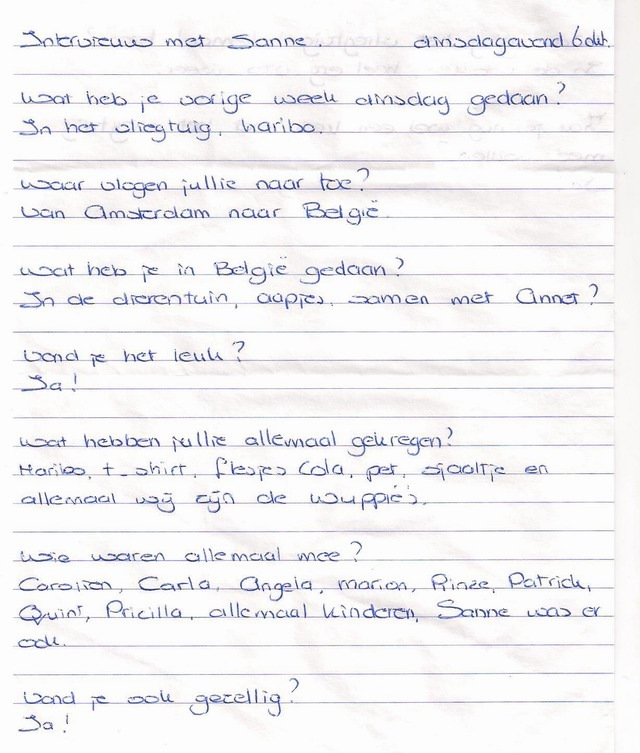 Interview met Sanne. dinsdagavond 6 okt.
Wat heb je vorige week dinsdag gedaan?
In het vliegtuig, haribo.
Waar vlogen jullie naar toe?
Van Amsterdam naar België.
Wat heb je in België gedaan?
In de dierentuin, aapjes, samen met Annet?
Vond je het leuk?
Ja!
Wat hebben jullie allemaal gekregen?
Haribo, t-shirt, flesjes Cola, pet, sjaaltje en
allemaal wij zijn de wuppie's.
Wie waren allemaal mee?
Carla, Angela, marion, Rinze, Patrick,
Quint, Pricilla, allemaal kinderen, Sanne was er
ook.
Vond je ook gezellig?
Ja!